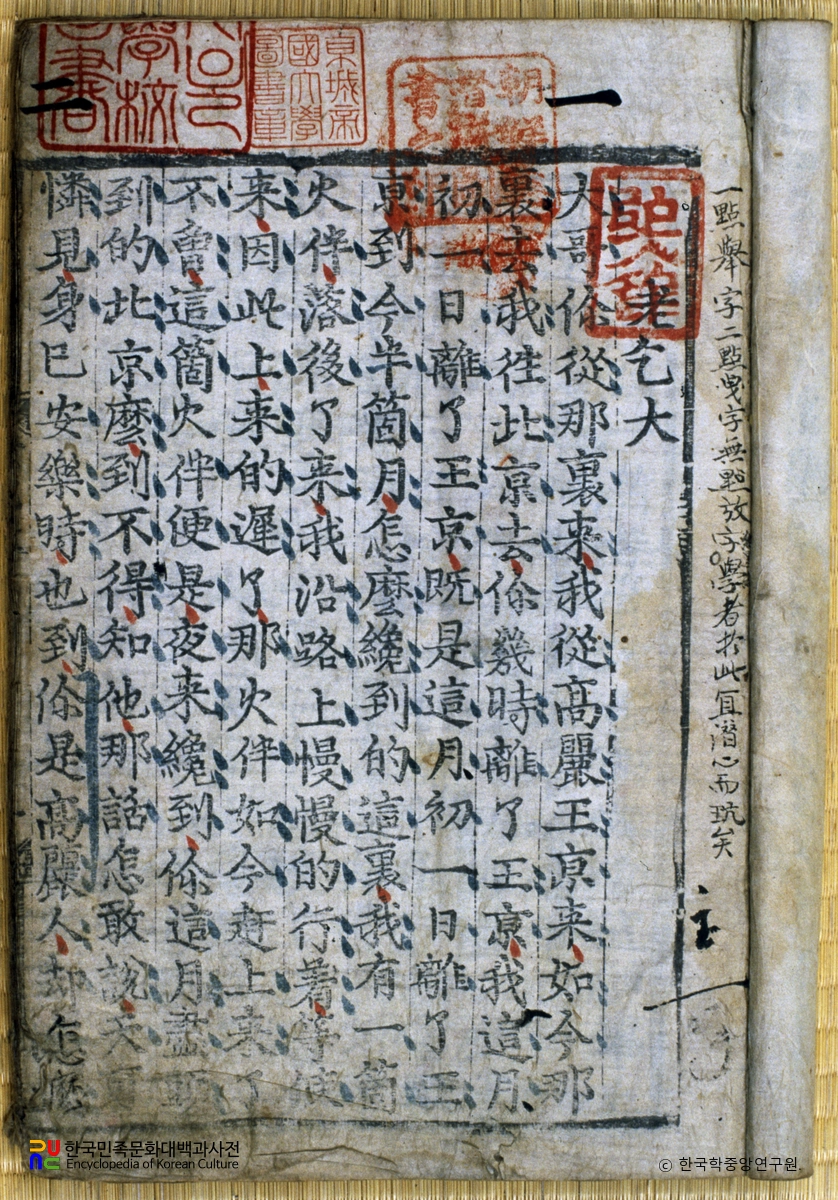 一點擧字二點曳字無點放字學者於此宜潛心而玩矣
一
二
京城帝
國大學
圖書章
老乞大
大哥你從那裏来我從高麗王京来如今那
裏去我徃北京去你幾時離了王京我這月
初一日離了王京既是這月初一日離了王
京到今半箇月怎麽纔到的這裏我有一箇
火伴落後了来我沿路上慢慢的行着等候
来因此上来的遲了那火伴如今赶上来了
不曾這箇火伴便是夜来纔到你這月盡頭
到的北京麽到不得知他那話怎敢說天可
憐見身已安樂時也到你是高麗人却怎麽
한국민족문화대백과사전
Encyclopedia of Korean Culture
© 한국학중앙연구원